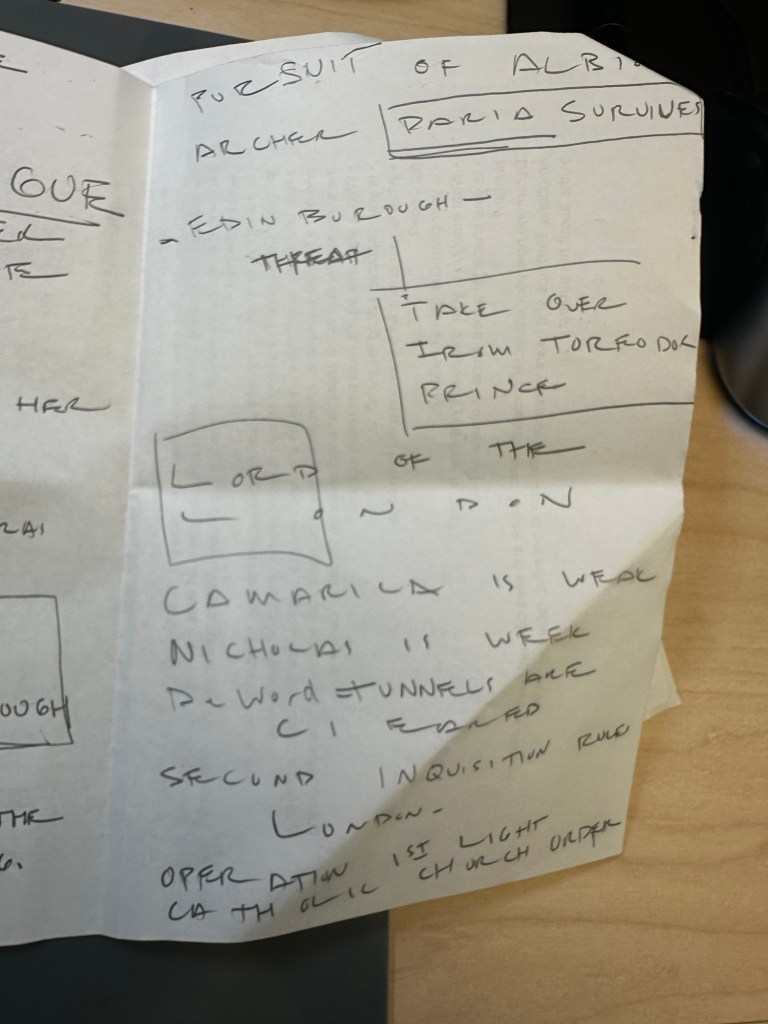 GUE
HER
OUGH
THE
PURSUIT OF ALBIO
ARCHER DARIA SURVIVES
- EDIN BUROUGH -
THREAT
TAKE OVER
FROM TOREODOR
PRINCE
LORD OF THE
LONDON
CAMARILLA IS WEAK
NICHOLAS IS WEEK
DeWord TUNNELS ARE
CLEARED
SECUND INQUISITION RULES
LONDON-
OPERATION 1ST LIGHT
CATHOLIC CHURCH ORDER